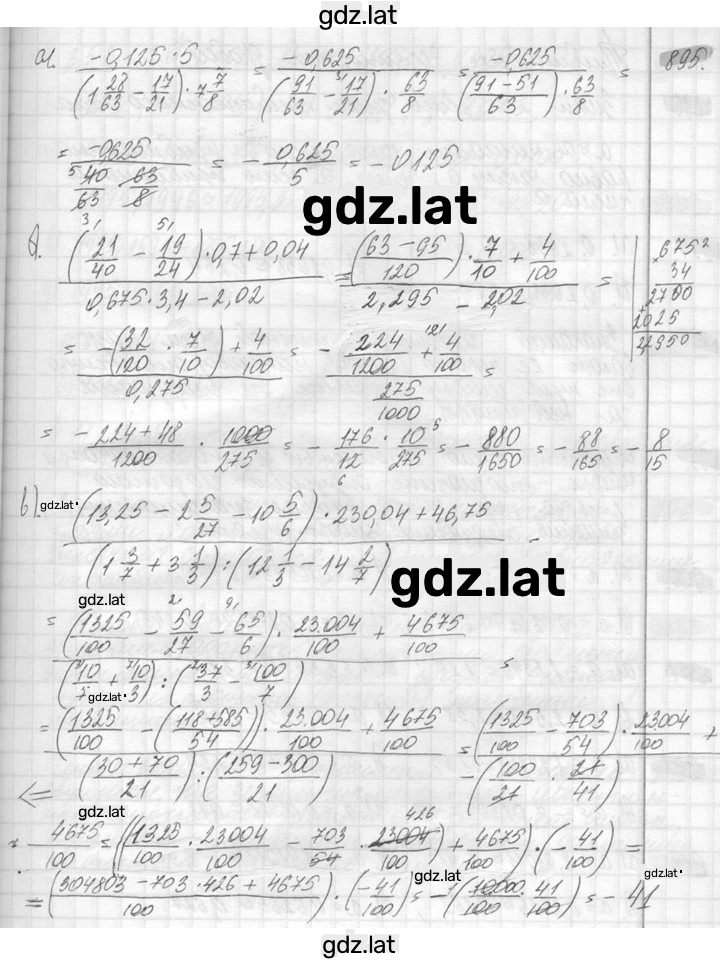 gdz.lat
895.
а). (-0,125 · 5) / ((1 28/63 - 17/21) · 7 7/8) = (-0,625) / ((91/63 - 17/21) · 63/8) = (-0,625) / (((91 - 51)/63) · 63/8) =
= (-0,625) / (40/63 · 63/8) = - 0,625/5 = -0,125
gdz.lat
((21/40 - 19/24) · 0,7 + 0,04) / (0,675 · 3,4 - 2,02) = (((63 - 95)/120) · 7/10 + 4/100) / (2,295 - 2,02) =
675
34
2700
2025
22950
= (-(32/120 · 7/10) + 4/100) / 0,275 = (-224/1200 + 4/100) / (275/1000) =
= (-224 + 48)/1200 · 1000/275 = - 176/12 · 10/275 = - 880/1650 = - 88/165 = - 8/15
в). gdz.lat ((13,25 - 2 5/27 - 10 5/6) · 230,04 + 46,75) / ((1 3/7 + 3 1/3) : (12 1/3 - 14 2/7)) =
gdz.lat
gdz.lat
= ((1325/100 - 59/27 - 65/6) · 23004/100 + 4675/100) / ((10/7 + 10/3) : (37/3 - 100/7)) =
gdz.lat
= ((1325/100 - ((118 + 585)/54)) · 23004/100 + 4675/100) / (((30 + 70)/21) : ((259 - 300)/21)) = ((1325/100 - 703/54) · 23004/100 + / -(100/21 · 21/41)
gdz.lat
+ 4675/100 = ((1325/100 · 23004/100 - 703/54 · 23004/100) + 4675/100) · (- 41/100) =
gdz.lat
gdz.lat
= ((304803 - 703 · 426 + 4675)/100) · (-41/100) = -(10000/100 · 41/100) = - 41
gdz.lat